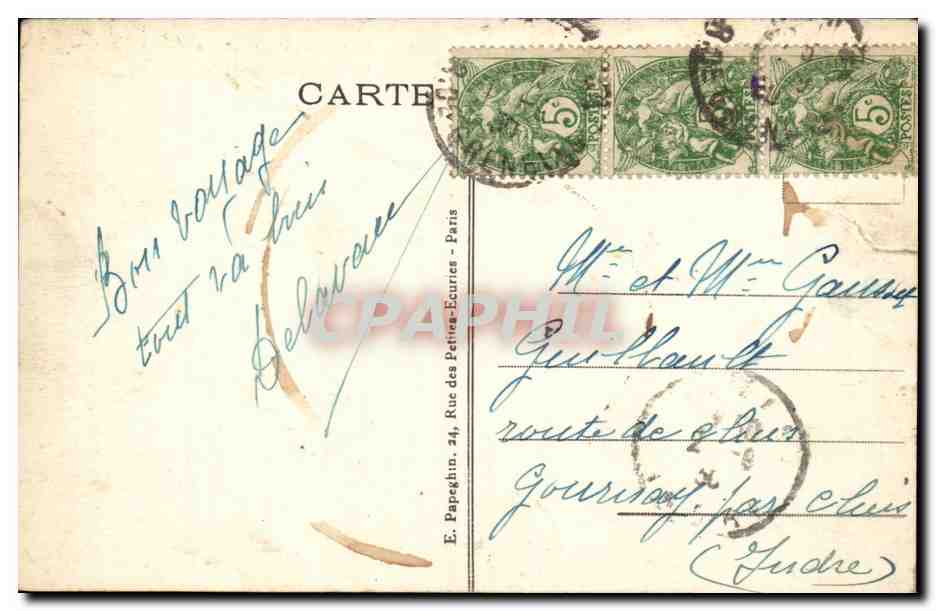 CARTE
Bon vollage
tout va bien
Delavau
E. Papeghin. 24, Rue des Petites-Ecuries - Paris
CPAPHIL
5c POSTES
5c POSTES
5c POSTES
Mr et Mme
Guilbault
route de Cluis
Gournay par Cluis
(Indre)